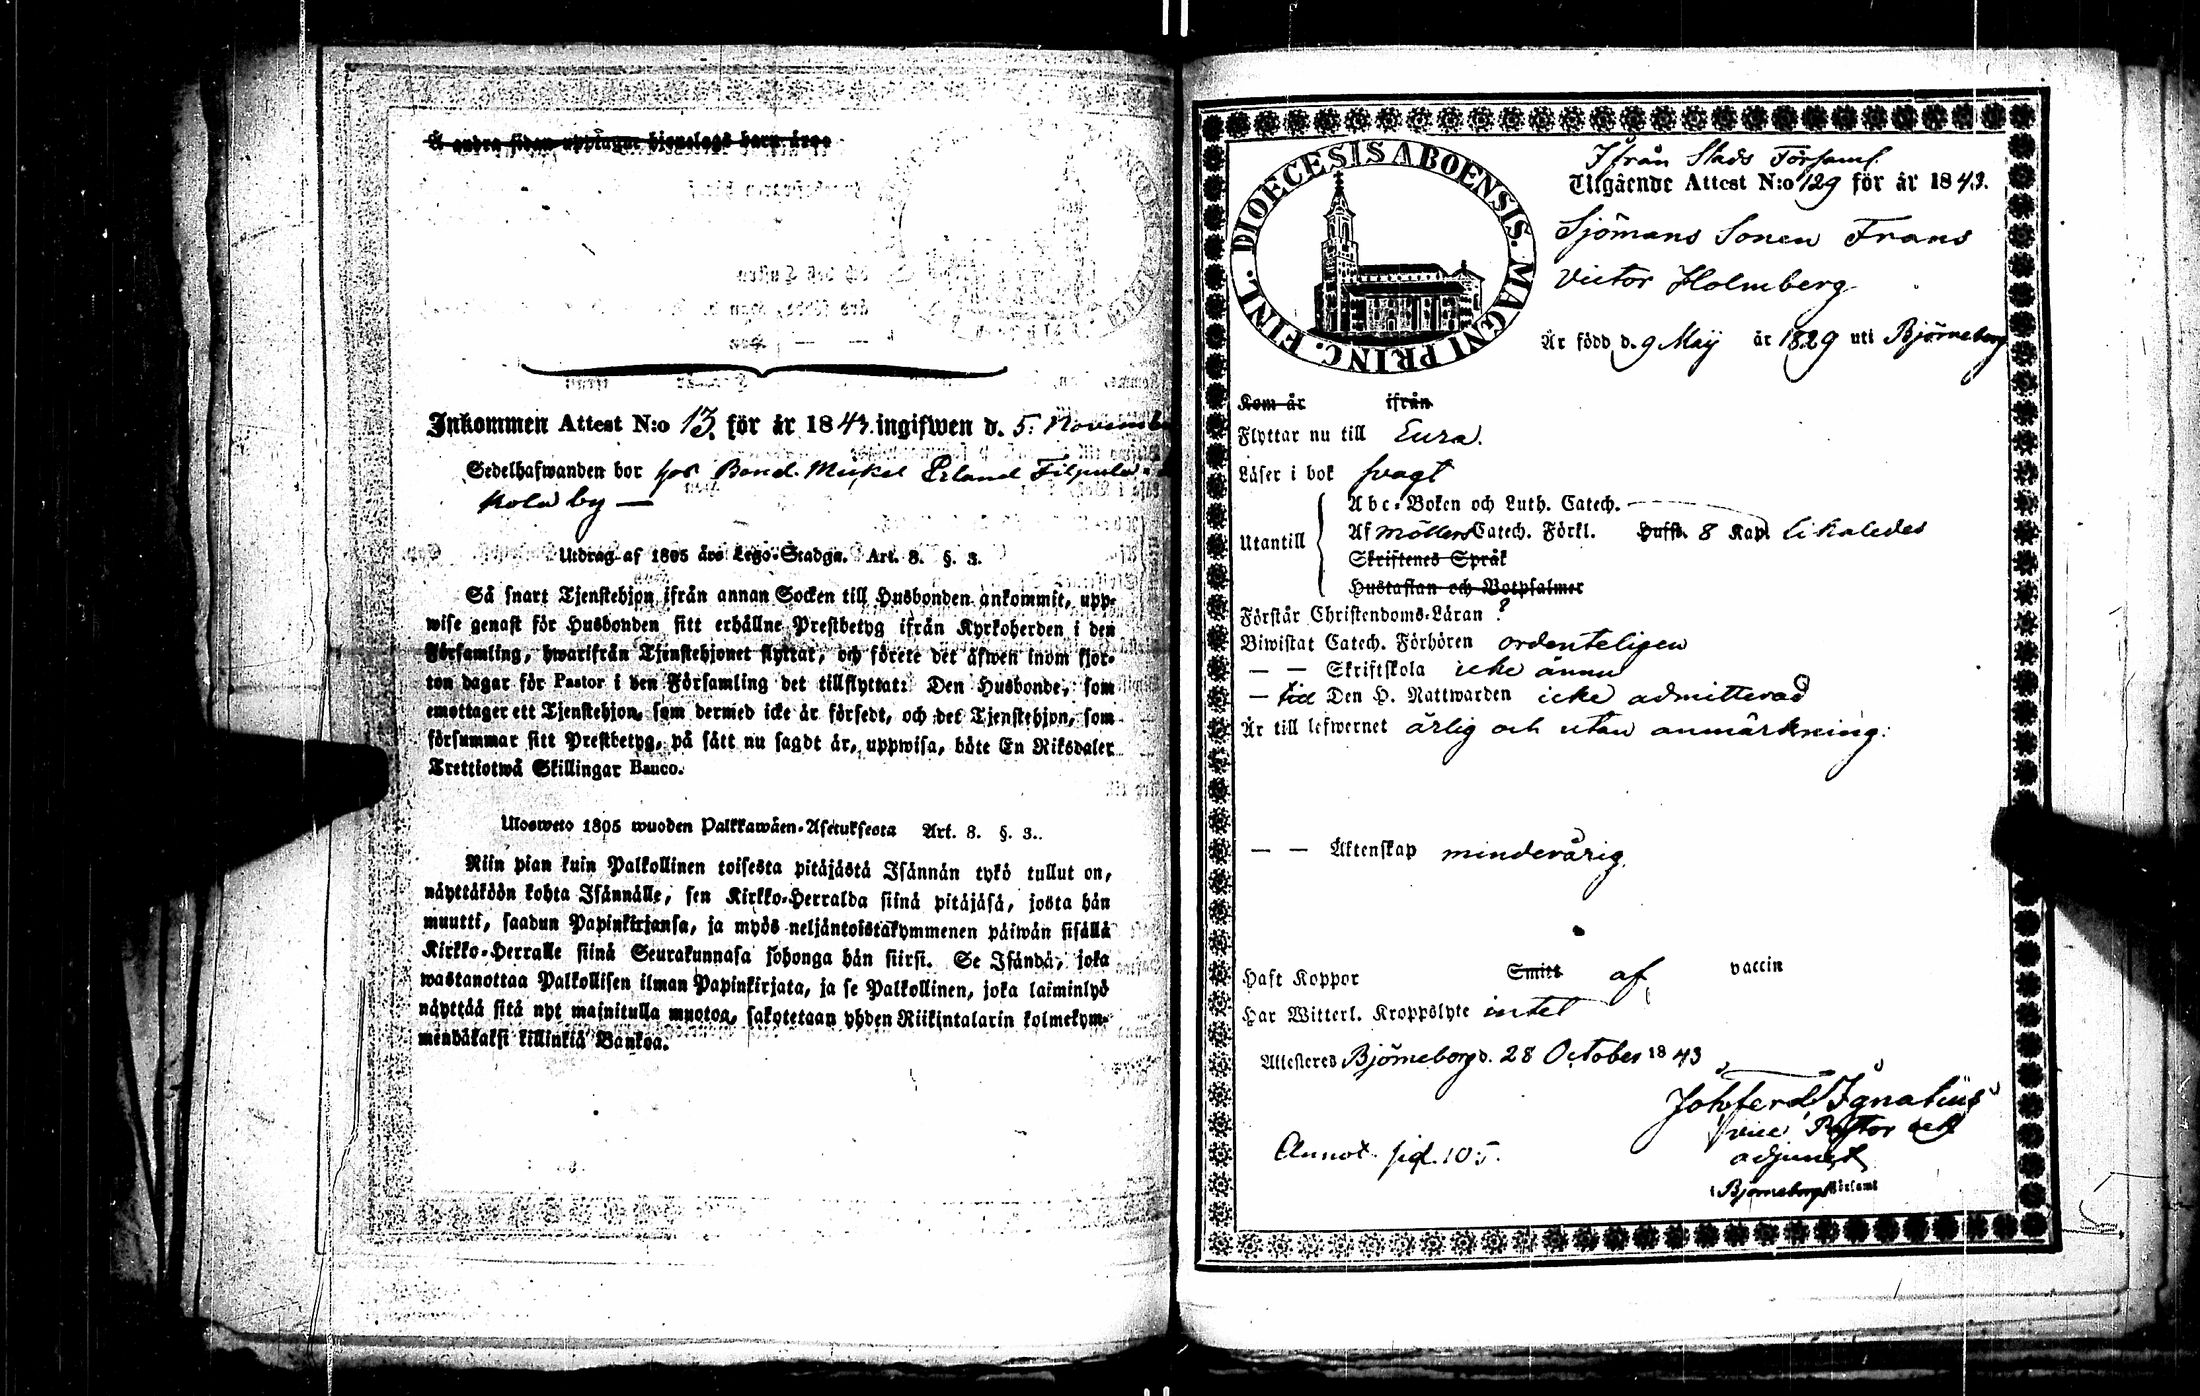 Å andra sidan upptagne hjonelags barn äro
Inkommen Attest N:o 13. för år 1843. ingifwen d. 5. Novemb
Sedelhafwanden bor hos Bond. Mickel Erland Filpula
Kola by —
Utdrag af 1805 års Lego-Stadga. Art. 8. §. 3.
Så snart Tjenstehjon ifrån annan Socken till Husbonden ankommit, upp-
wise genast för Husbonden sitt erhållne Prestbetyg ifrån Kyrkoherden i den
Församling, hwarifrån Tjenstehjonet flyttat, och förete det äfwen inom fjor-
ton dagar för Pastor i den Församling det tillflyttat: Den Husbonde, som
emottager ett Tjenstehjon, som dermed icke är försedt, och det Tjenstehjon, som
försummar sitt Prestbetyg, på sätt nu sagdt är, uppwisa, böte En Riksdaler
Trettiotwå Skillingar Banco.
Ulosweto 1805 wuoden Palkkawäen-Asetuksesta Art. 8. §. 3..
Niin pian kuin Palkollinen toisesta pitäjästä Isännän tykö tullut on,
näyttäköön kohta Isännälle, sen Kirkko-Herralda siinä pitäjäsä, josta hän
muutti, saadun Papinkirjansa, ja myös neljäntoistakymmenen päiwän sisällä
Kirkko-Herralle siinä Seurakunnasa johonga hän siirsi. Se Isändä, joka
wastanottaa Palkollisen ilman Papinkirjata, ja se Palkollinen, joka laiminlyö
näyttää sitä nyt mainitulla muotoa, sakotetaan yhden Riikintalarin kolmekym-
mendäkaksi killinkiä Bankoa.
DIOECESIS ABOENSIS. MAGNI PRINC. FINL.
Ifrån Stads Församl.
Utgående Attest N:o 129 för år 1843.
Sjömans Sonen Frans
Victor Holmberg
Är född d. 9 Maij år 1829 uti Björneborg
Kom år ifrån
Flyttar nu till Eura.
Läser i bok svagt
Utantill
Abc-Boken och Luth. Catech.
Af Möllers Catech. Förkl. Hufst. 8 Kap. likaledes
Skriftenes Språk
Hustaflan och Botpsalmer
Förstår Christendoms-Läran ?
Biwistat Catech. Förhören ordenteligen
— — Skriftskola icke ännu
— till Den H. Nattwarden icke admitterad
Är till lefwernet ärlig och utan anmärkning.
— — Äktenskap minderårig.
Haft Koppor Smitt af vaccin
Har Witterl. Kroppslyte intet
Attesteras Björneborg d. 28 October 1843
Joh Ferd Ignatius
vice Pastor och
adjunct
i Björneborgs Församl
Annot. pag. 105.